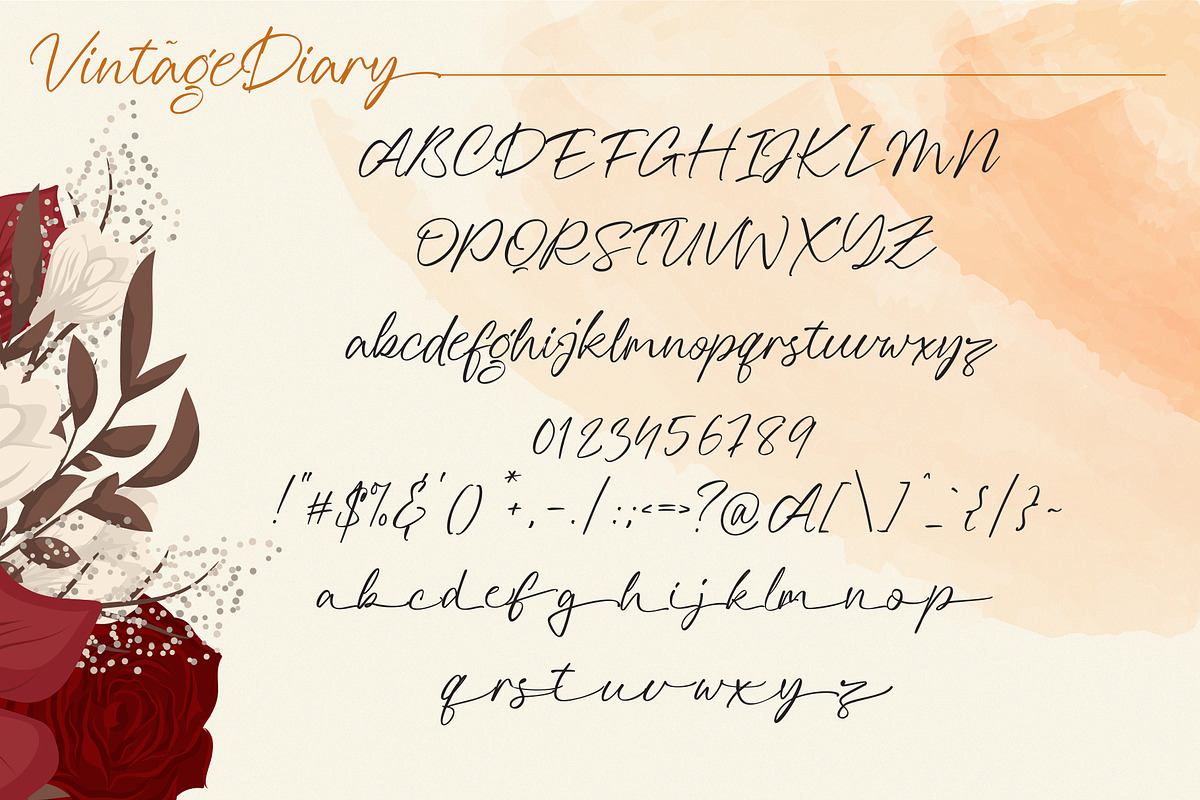 VintãgeDiary
ABCDEFGHIJKLMN
OPQRSTUVWXYZ
abcdefghijklmnopqrstuvwxyz
0123456789
!"#$%&'()*+,-./:;<=>?@A[\]^_`{/}~
abcdefghijklmnop
qrstuvwxyz